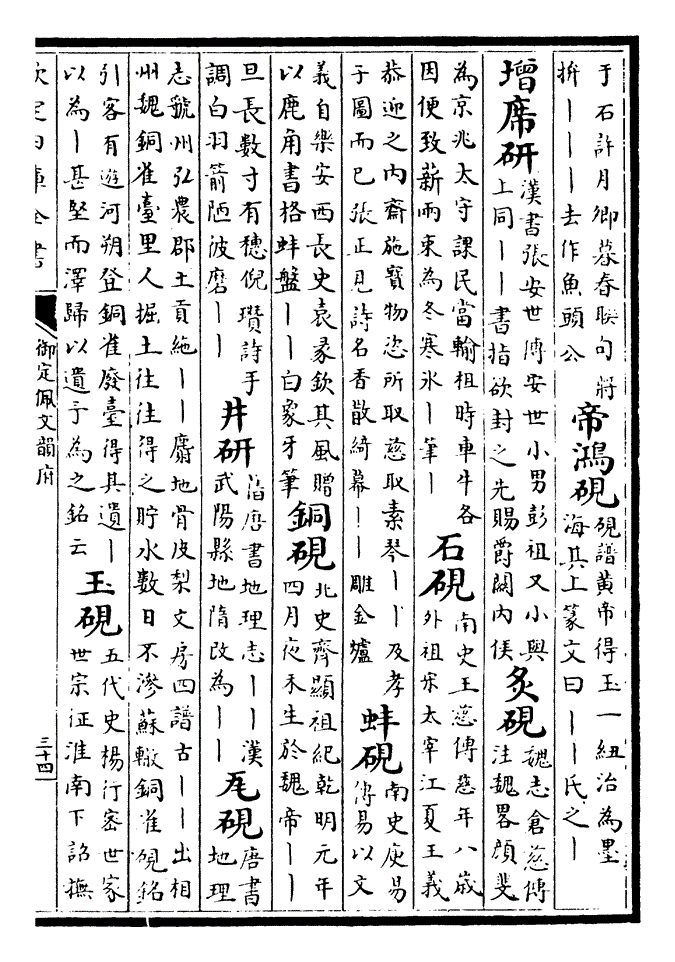 于石許月卿暮春聯句將
拚丨丨丨去作魚頭公
帝鴻硯
硯譜黃帝得玉一紐治為墨
海其上篆文曰丨丨氏之丨
增席研
漢書張安世傳安世小男彭祖又小與
上同丨丨書指欲封之先賜爵關內侯
炙硯
魏志倉慈傳
注魏畧顏斐
為京兆太守課民當輸租時車牛各
因便致薪兩束為冬寒氷丨筆丨
石硯
南史王慈傳慈年八歲
外祖宋太宰江夏王義
恭迎之內齋施寶物恣所取慈取素琴丨丨及孝
子圖而已張正見詩名香散綺幕丨丨雕金爐
蚌硯
南史庾易
傳易以文
義自樂安西長史袁彖欽其風贈
以鹿角書格蚌盤丨丨白象牙筆
銅硯
北史齊顯祖紀乾明元年
四月夜禾生於魏帝丨丨
旦長數寸有穗倪瓚詩手
調白羽箭陋波磨丨丨
井研
舊唐書地理志丨丨漢
武陽縣地隋改為丨丨
瓦硯
唐書
地理
志虢州弘農郡土貢絁丨丨麝地骨皮梨文房四譜古丨丨出相
州魏銅雀臺里人掘土往往得之貯水數日不滲蘇轍銅雀硯銘
引客有遊河朔登銅雀廢臺得其遺丨
以為丨甚堅而澤歸以遺予為之銘云
玉硯
五代史楊行密世家
世宗征淮南下詔撫
欽定四庫全書
御定佩文韻府
三十四